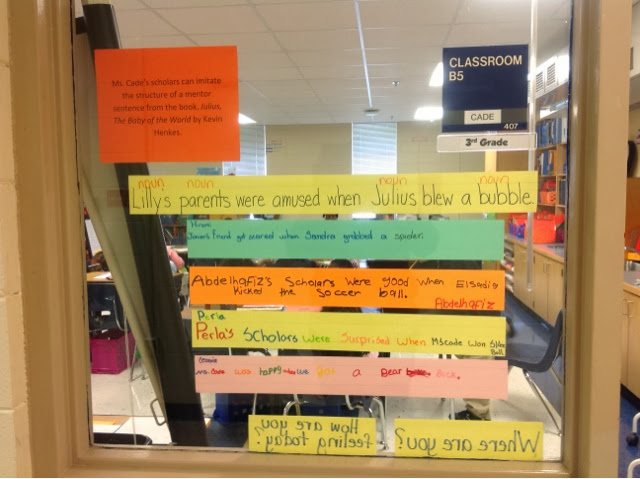 Ms. Cade's scholars can imitate
the structure of a mentor
sentence from the book, Julius,
The Baby of the World by Kevin
Henkes.
CLASSROOM
B5
CADE
407
3rd Grade
noun noun noun noun
Lilly's parents were amused when Julius blew a bubble.
friend got scared when Sandra grabbed a spider.
Abdelhafiz's Scholars were good when Elsadig
Kicked the soccer ball.
Abdelhafiz
Perla
Perla's Scholars were Surprised when Ms cade won
Ball
Ms. Cade was happy we got a Bear
How are you
feeling today?
Where are you?